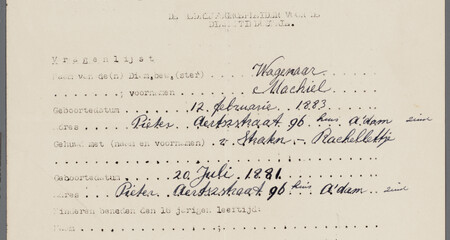 V r a g e n l i j s t
Naam van de(n) Dien,bee,(ster) Wagenaar
; voornamen Machiel
Geboortedatum 12 februarie 1883
adres Pieter Aertszstraat 96 huis A'dam zuid
Gehuwd met (naam en voornamen) v. Straten - Rachellettje
Geboortedatum 20 Juli 1881
adres Pieter Aertszstraat 96 huis A'dam zuid
Kinderen beneden den 16 jarigen leeftijd:
Naam ;